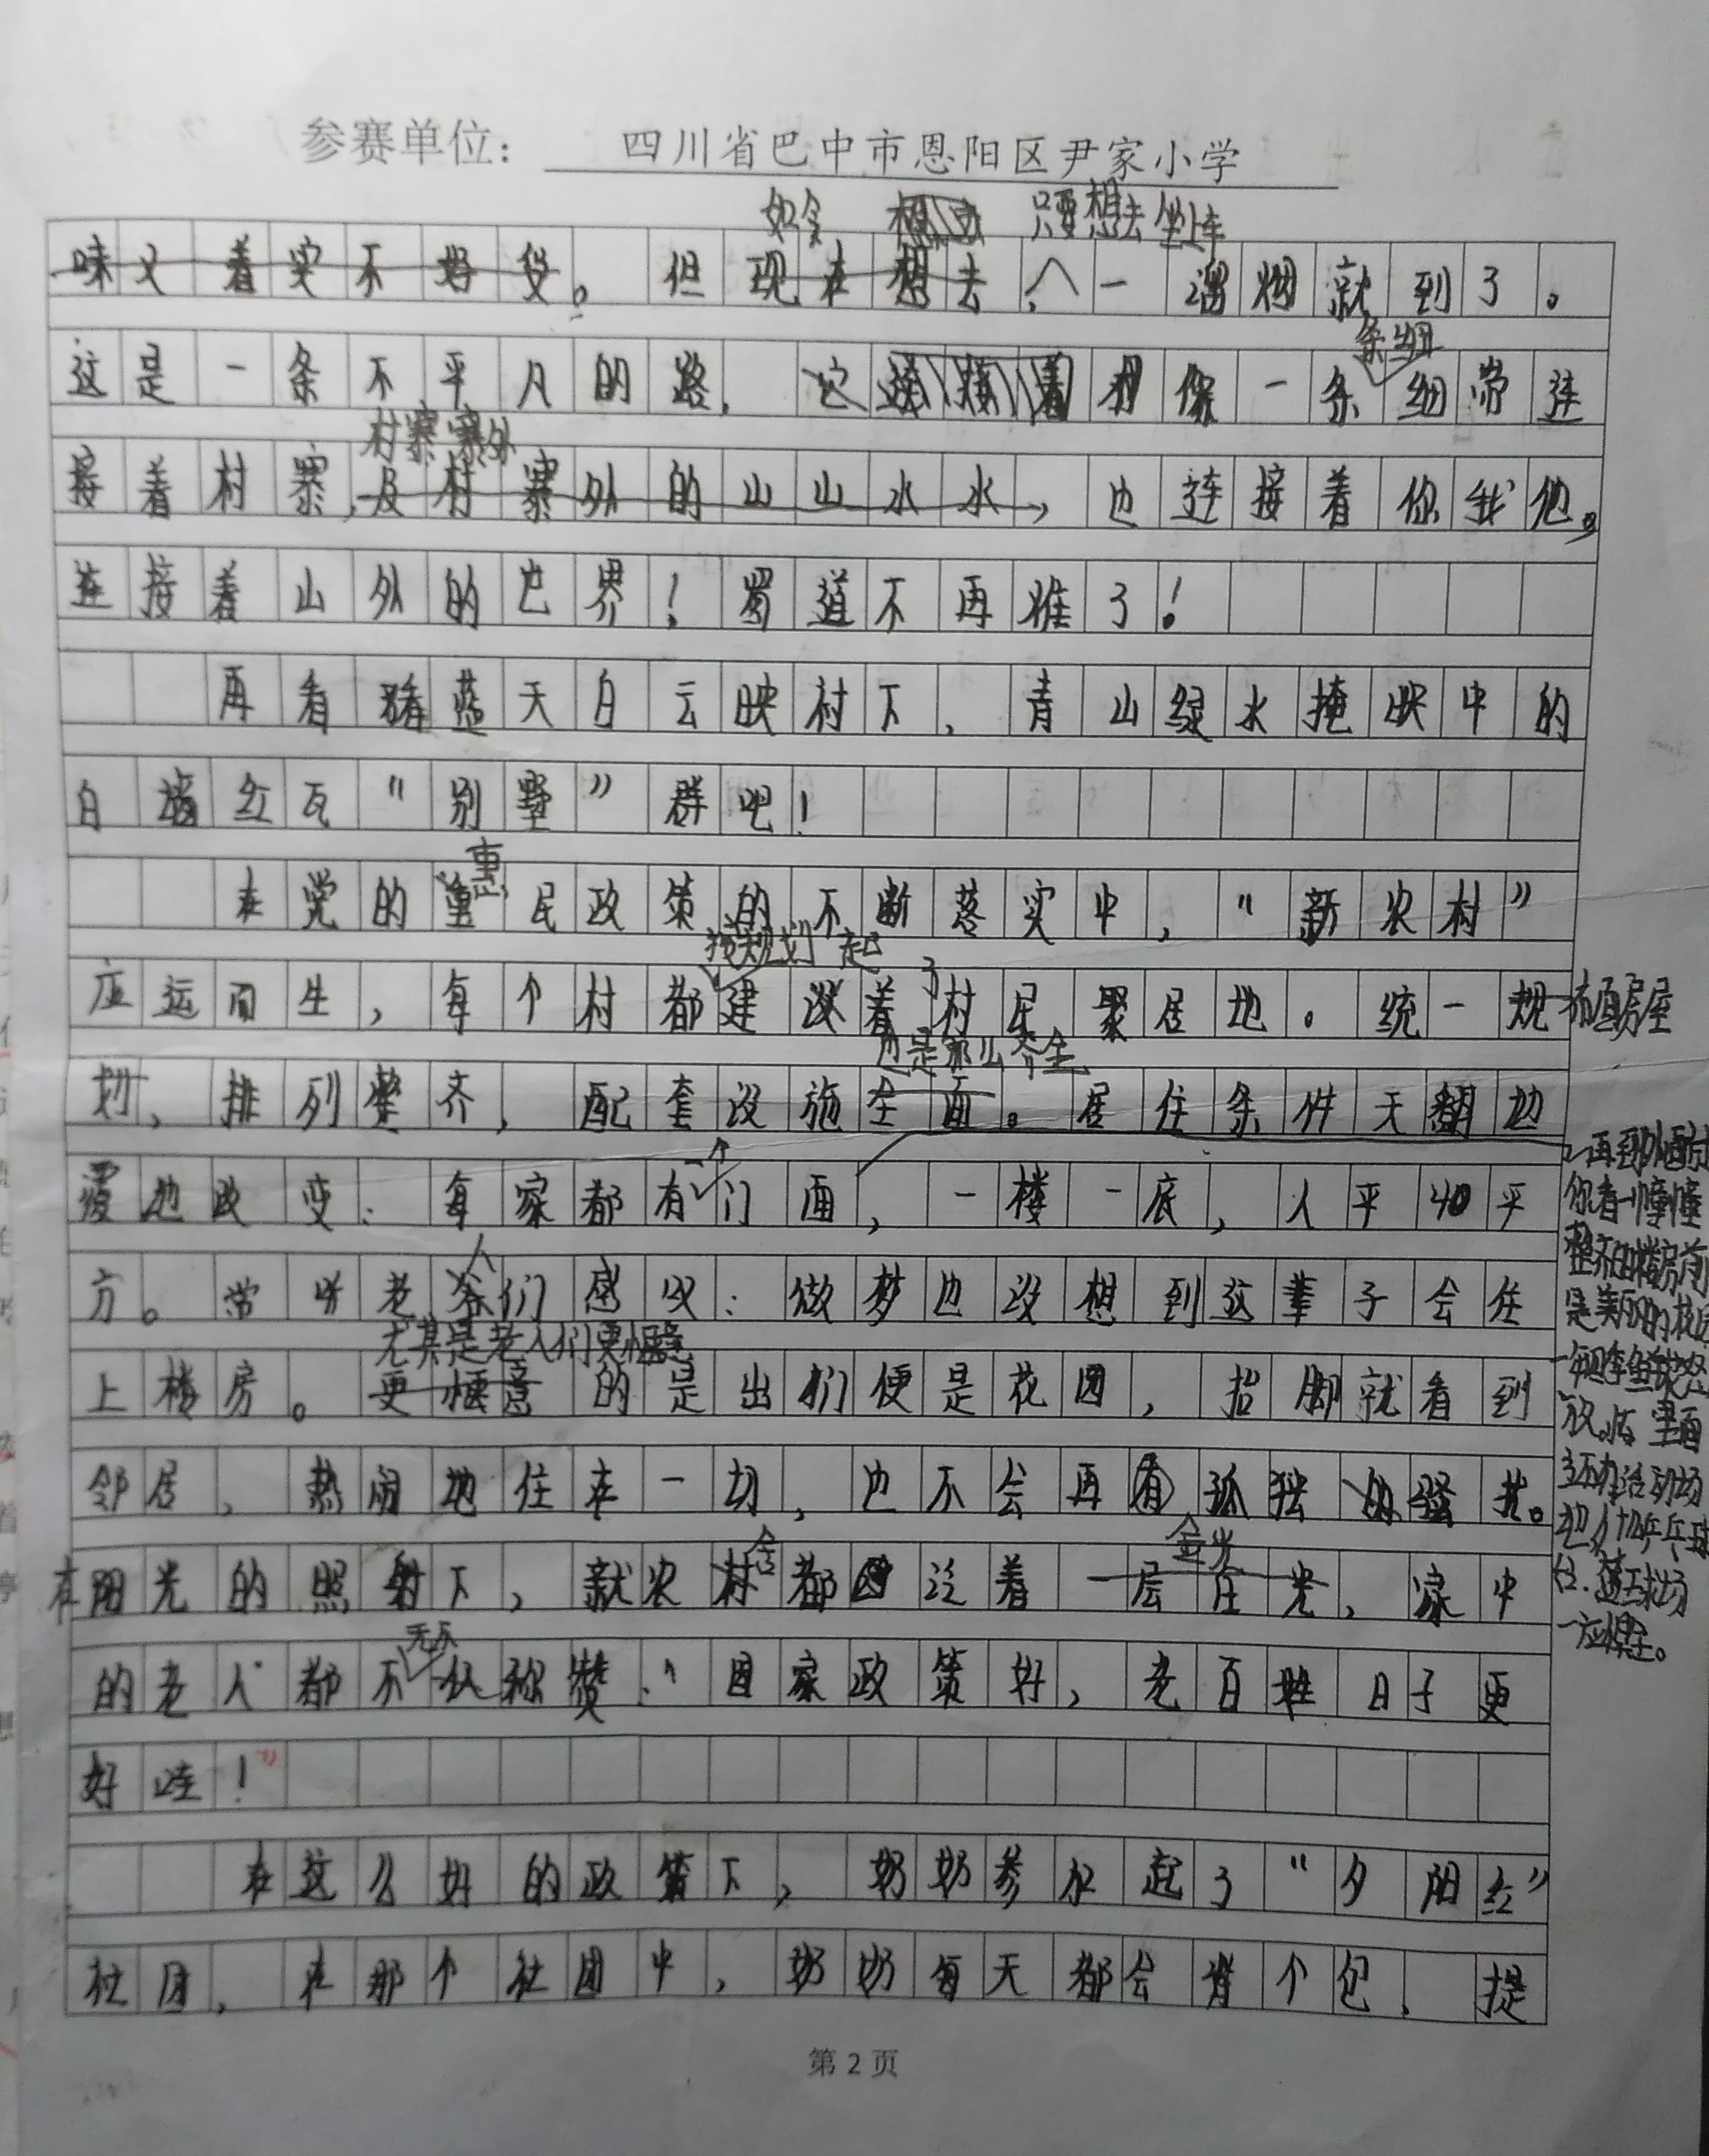 参赛单位：四川省巴中市恩阳区尹家小学
如今 只要想去坐上车
味又着实不好受。但现在想去，一溜烟就到了。
条纽
这是一条不平凡的路，它连接着犹像一条细带连
村寨寨外
接着村寨，及村寨外的山山水水，也连接着你我他。
连接着山外的世界！蜀道不再难了！
再看看蓝天白云映村下，青山绿水掩映中的
白墙红瓦“别墅”群吧！
惠
在党的惠民政策的不断落实中，“新农村”
按规划 起 了
应运而生，每个村都建设着村民聚居地。统一规
布置房屋
也是那么齐全
划，排列整齐，配套设施全面。居住条件天翻地
一个
覆地改变：每家都有门面，一楼一底，人平40平
人
方。常听老爷们感叹：做梦也没想到这辈子会住
尤其是老人们更惬意
上楼房。更惬意的是出门便是花园，抬脚就看到
邻居，热闹地住在一切，也不会再有孤独的骚扰。
舍 金光
在阳光的照射下，就农村都泛着一层庄光，家中
无不
的老人都不么称赞：“国家政策好，老百姓日子更
好哇！”
在这么好的政策下，奶奶参加起了“夕阳红”
社团，在那个社团中，奶奶每天都会背个包，提
再到外面
你看一幢幢
整齐的楼房前
是美丽的校园
一年四季鲜花怒
放。 里面
还有活动场
地，什么乒乓球
台、蓝球场
一应俱全。
第2页